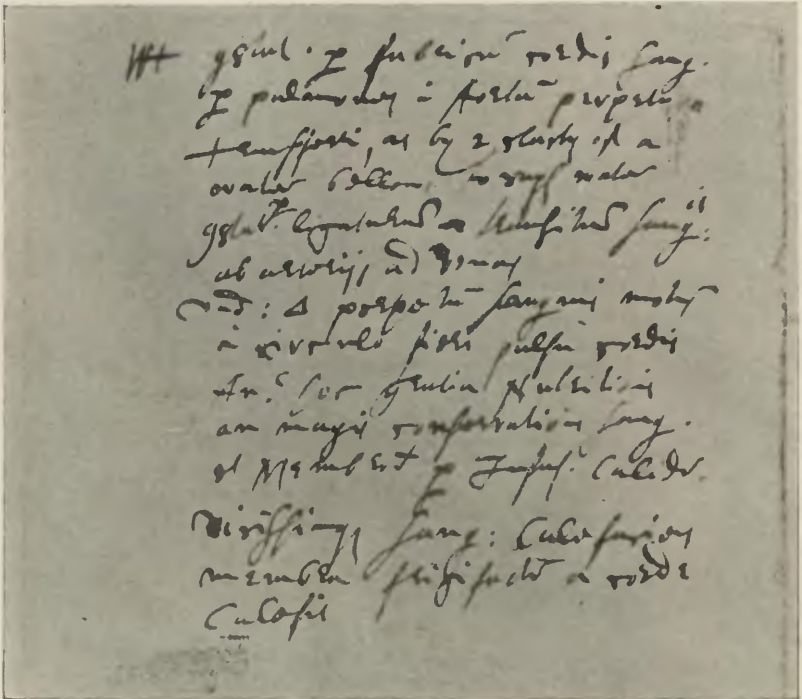 WH constat p fabricam cordis sang.
p pulmones in Aortam perpetuo
transferri, as by 2 clacks of a
water bellows to rayse water
constat p ligaturam transitum sang:is
ab arterijs ad venas
und: Δ perpetuum sanguinis motum
in circulo fieri pulsu cordis
An? hoc gratia Nutritionis
an magis conservationis sang.
et Membrorum p Infus: Calidam
vicissimque sang: Calefaciens
membra frigifactum a corde
Calefit